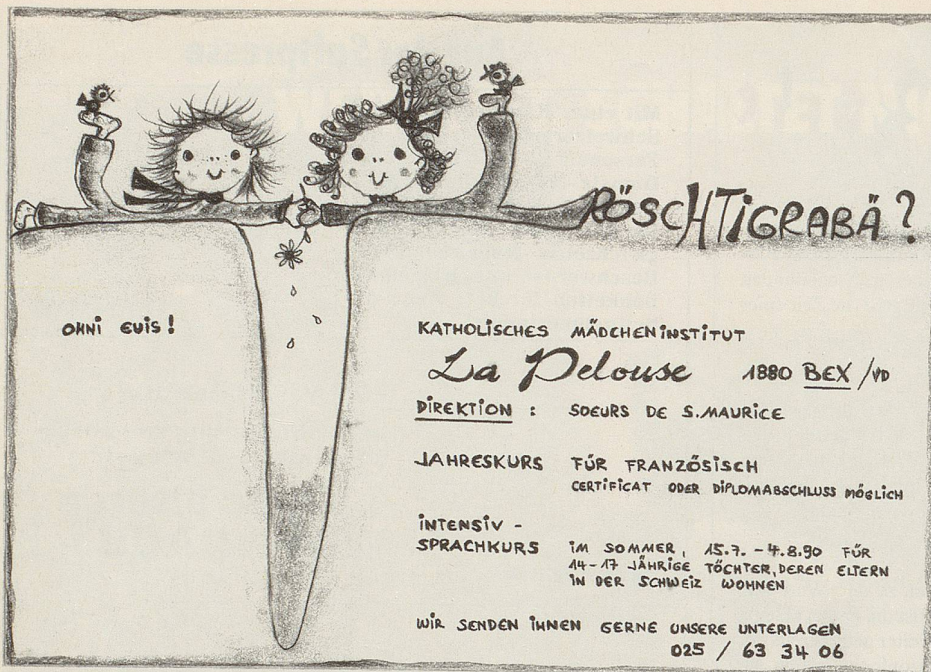 RÖSCHTIGRABÄ?
OHNI EUIS!
KATHOLISCHES MÄDCHENINSTITUT
La Pelouse 1880 BEX/VD
DIREKTION : SOEURS DE S.MAURICE
JAHRESKURS FÜR FRANZÖSISCH
CERTIFICAT ODER DIPLOMABSCHLUSS MÖGLICH
INTENSIV -
SPRACHKURS IM SOMMER, 15.7. - 4.8.90 FÜR
14-17 JÄHRIGE TÖCHTER, DEREN ELTERN
IN DER SCHWEIZ WOHNEN
WIR SENDEN IHNEN GERNE UNSERE UNTERLAGEN
025 / 63 34 06